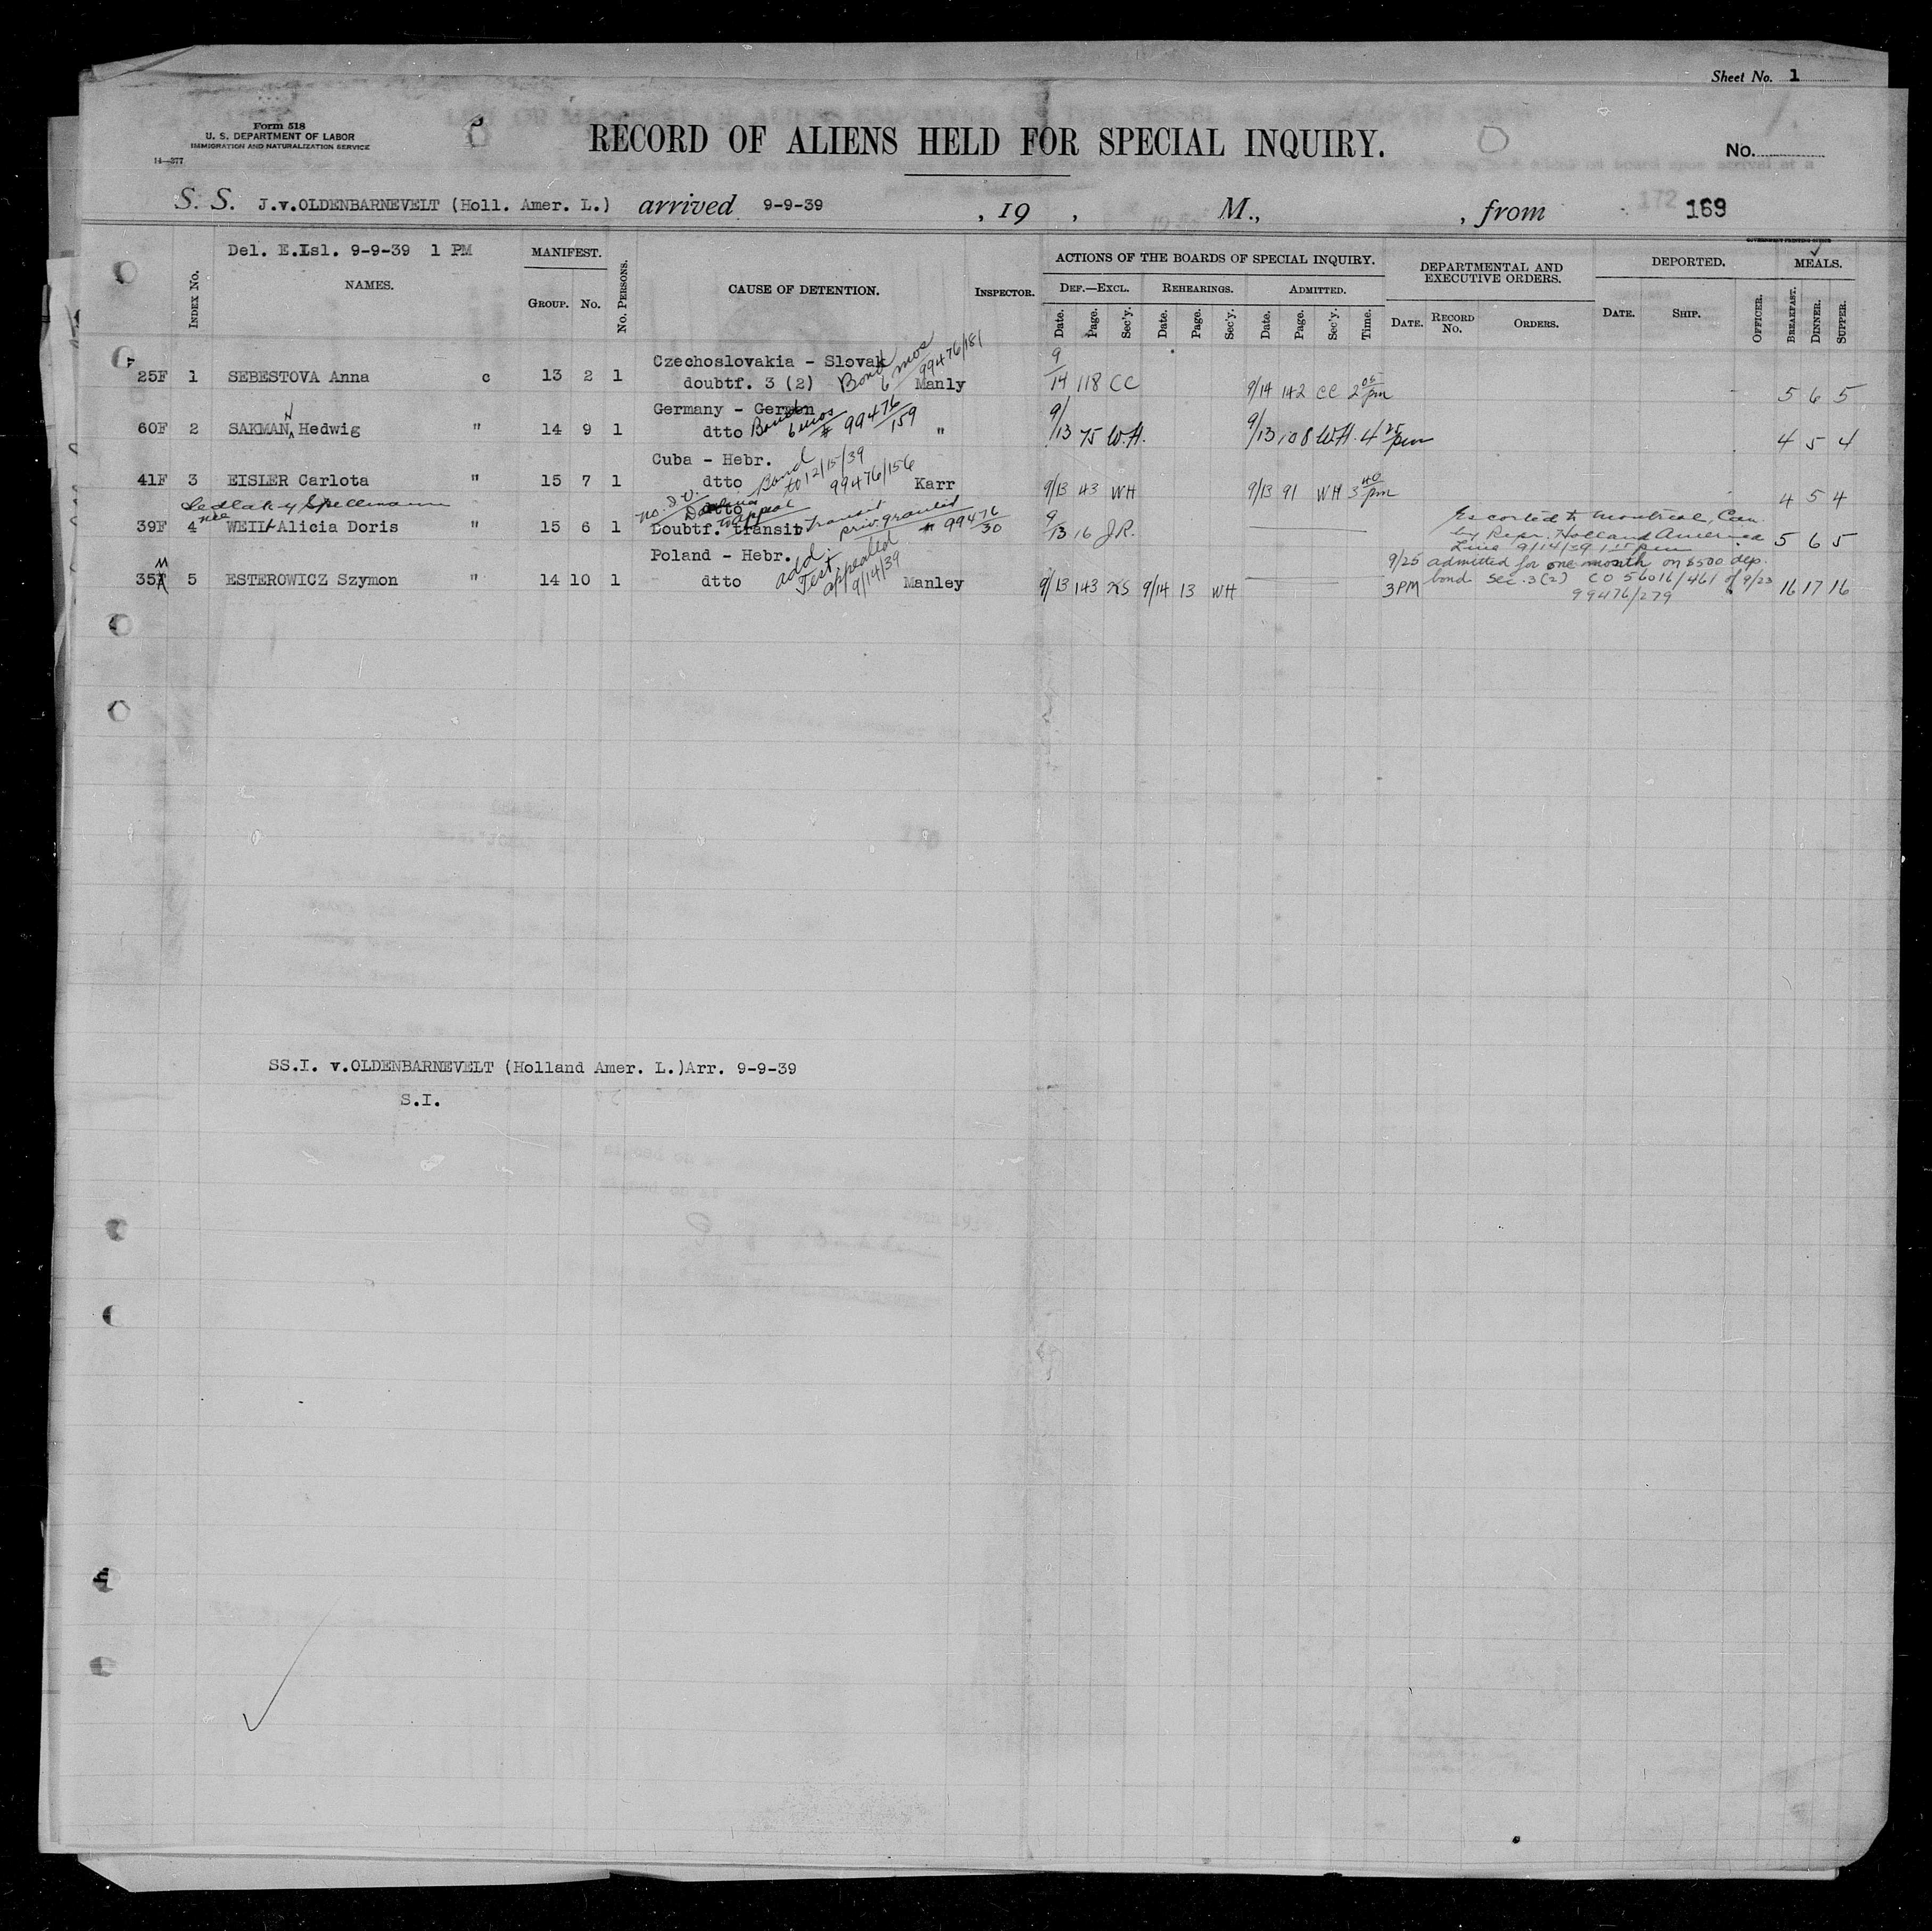 Sheet No. 1
Form 518
U. S. DEPARTMENT OF LABOR
IMMIGRATION AND NATURALIZATION SERVICE
14—377
RECORD OF ALIENS HELD FOR SPECIAL INQUIRY.
No.
172
169
S. S. J.v.OLDENBARNEVELT (Holl. Amer. L.) arrived 9-9-39 , 19 , M., , from
GOVERNMENT PRINTING OFFICE
Del. E.Isl. 9-9-39 1 PM
INDEX No. NAMES. MANIFEST. GROUP. No. No. PERSONS. CAUSE OF DETENTION. INSPECTOR.
ACTIONS OF THE BOARDS OF SPECIAL INQUIRY.
DEF.—EXCL. REHEARINGS. ADMITTED.
Date. Page. Sec'y. Date. Page. Sec'y. Date. Page. Sec'y. Time.
DEPARTMENTAL AND EXECUTIVE ORDERS.
DATE. RECORD No. ORDERS.
DEPORTED.
DATE. SHIP. OFFICER.
MEALS.
BREAKFAST. DINNER. SUPPER.
Czechoslovakia - Slovak
25F 1 SEBESTOVA Anna c 13 2 1 doubtf. 3 (2) Bond 6 mos 99476/181 Manly 9/14 118 CC 9/14 142 CC 2 05 pm 5 6 5
Germany - German
60F 2 SAKMAN N Hedwig " 14 9 1 dtto Bond 6 mos # 99476/159 " 9/13 75 W.H. 9/13 108 WH. 4 25 pm 4 5 4
Cuba - Hebr.
41F 3 EISLER Carlota " 15 7 1 dtto Bond to 12/15/39 99476/156 Karr 9/13 43 WH 9/13 91 WH 3 40 pm 4 5 4
Sedlak y Spellmann
dtto
39F 4 nee WEIL Alicia Doris " 15 6 1 Doubtf. transit to appeal Transit priv. granted # 99476/30 9/13 16 J.R. Escorted to Montreal, Can.
by Repr. Holland America
Line 9/14/39 pm 5 6 5
Poland - Hebr.
35M 5 ESTEROWICZ Szymon " 14 10 1 dtto add. Test. appealed 9/14/39 Manley 9/13 143 KS 9/14 13 WH 9/25 3PM admitted for one month on $500 dep.
bond Sec. 3(2) CO 56016/461 of 9/23
99476/279 16 17 16
SS.I. v.OLDENBARNEVELT (Holland Amer. L.)Arr. 9-9-39
S.I.